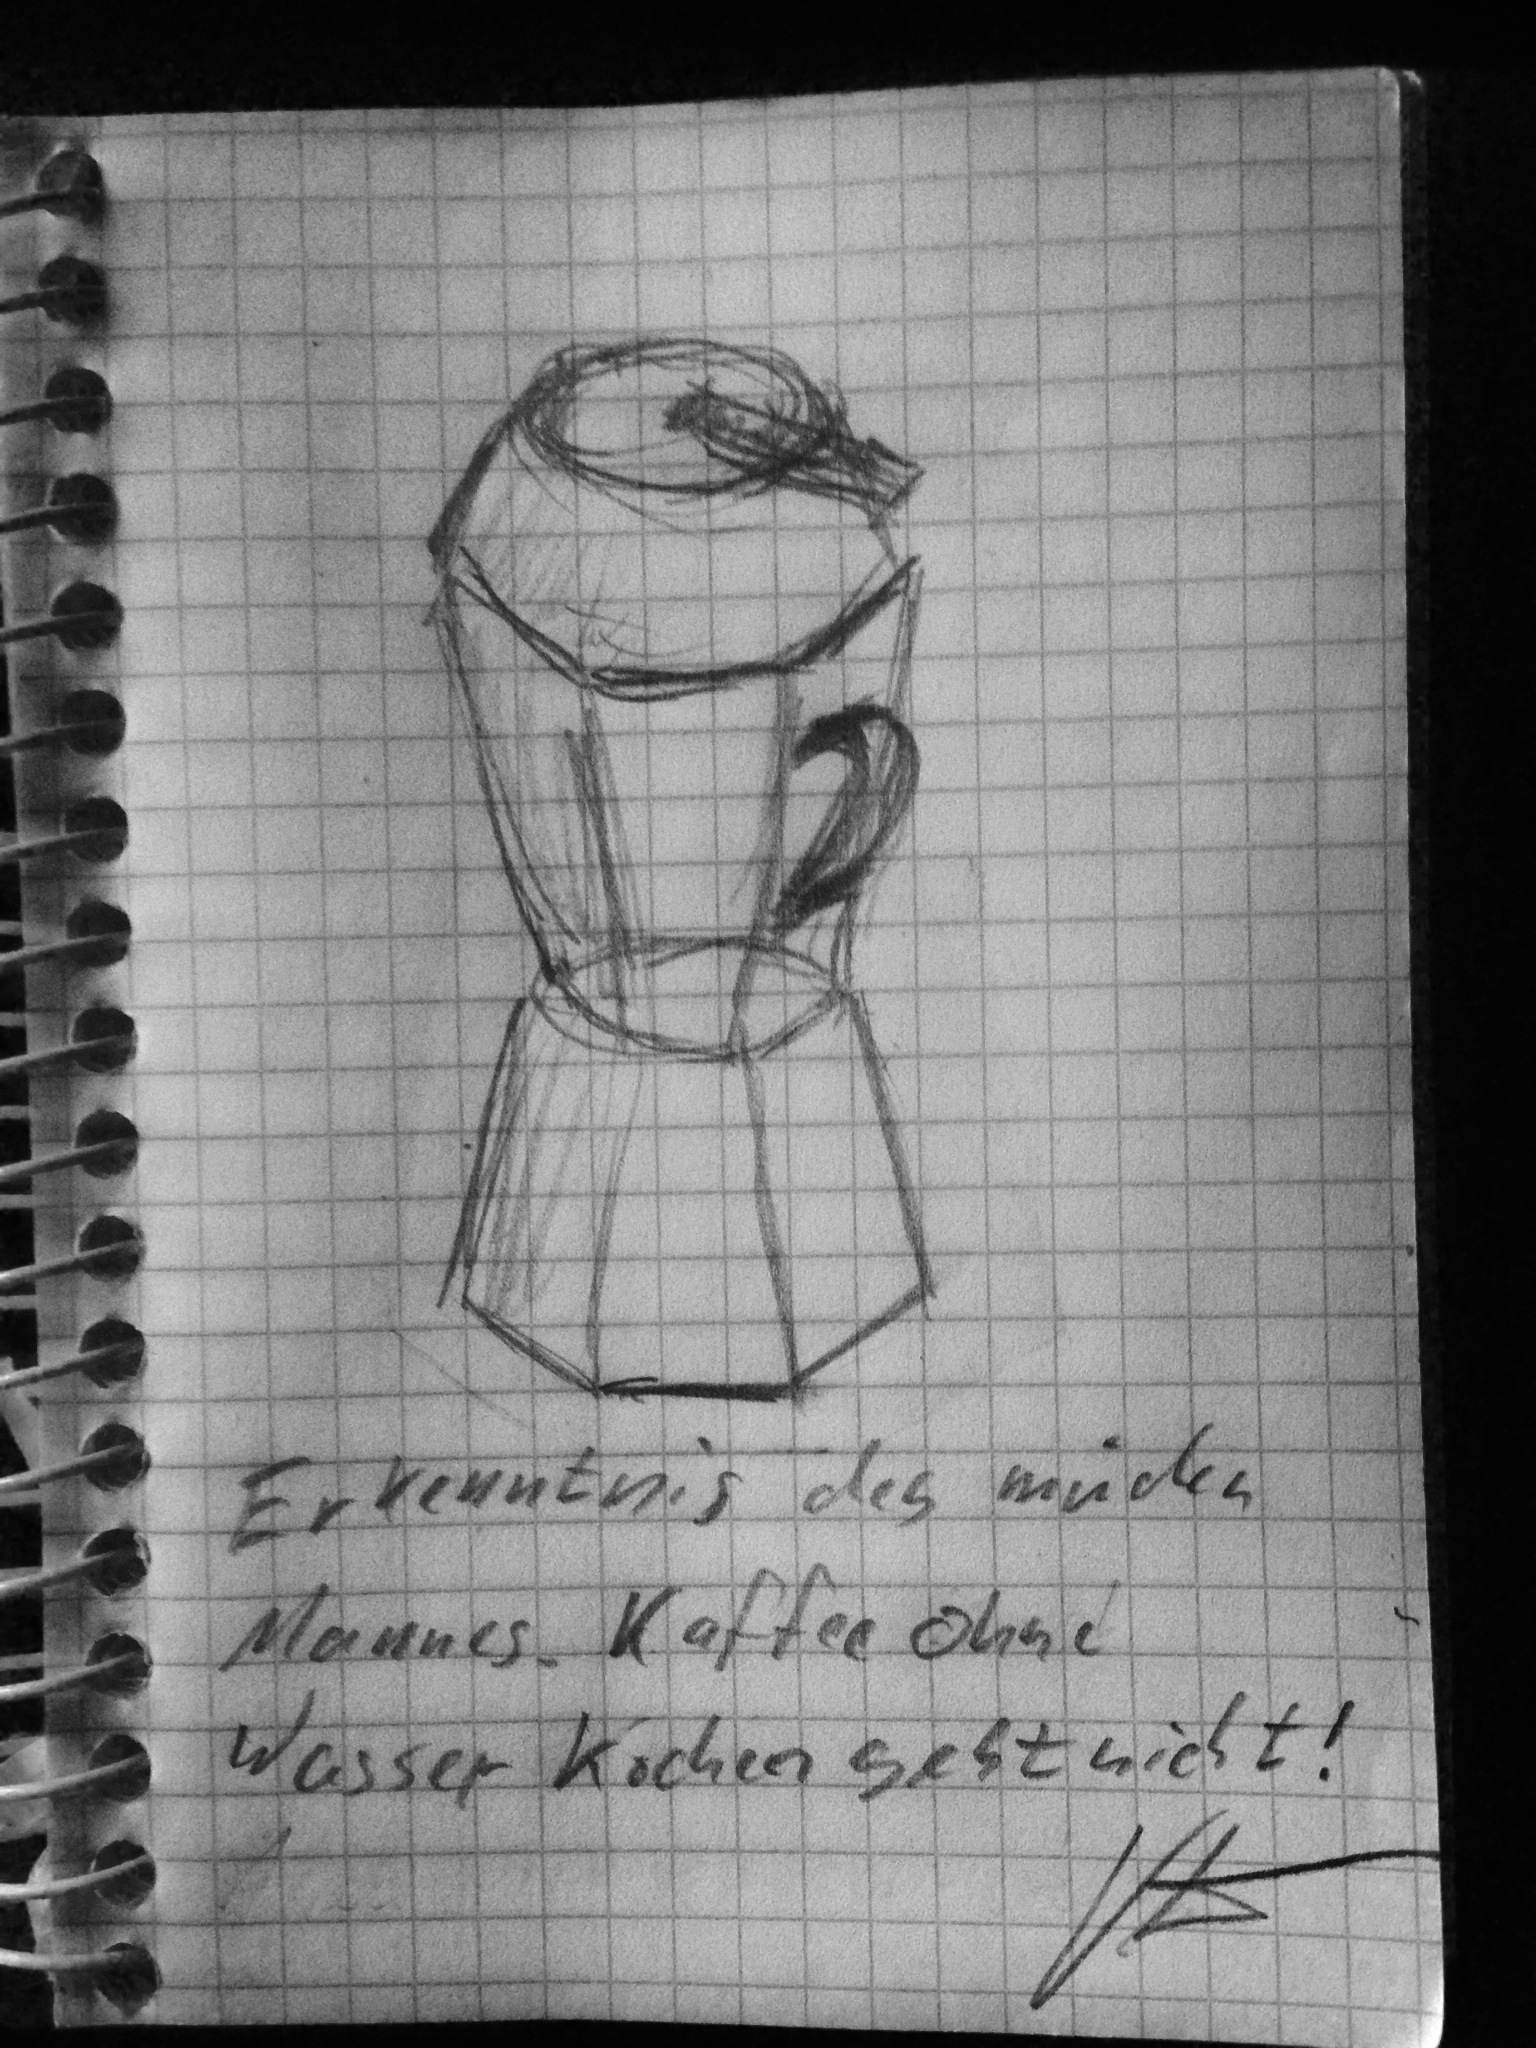 Erkenntnis des müden
Mannes. Kaffee ohne
Wasser kochen geht nicht!